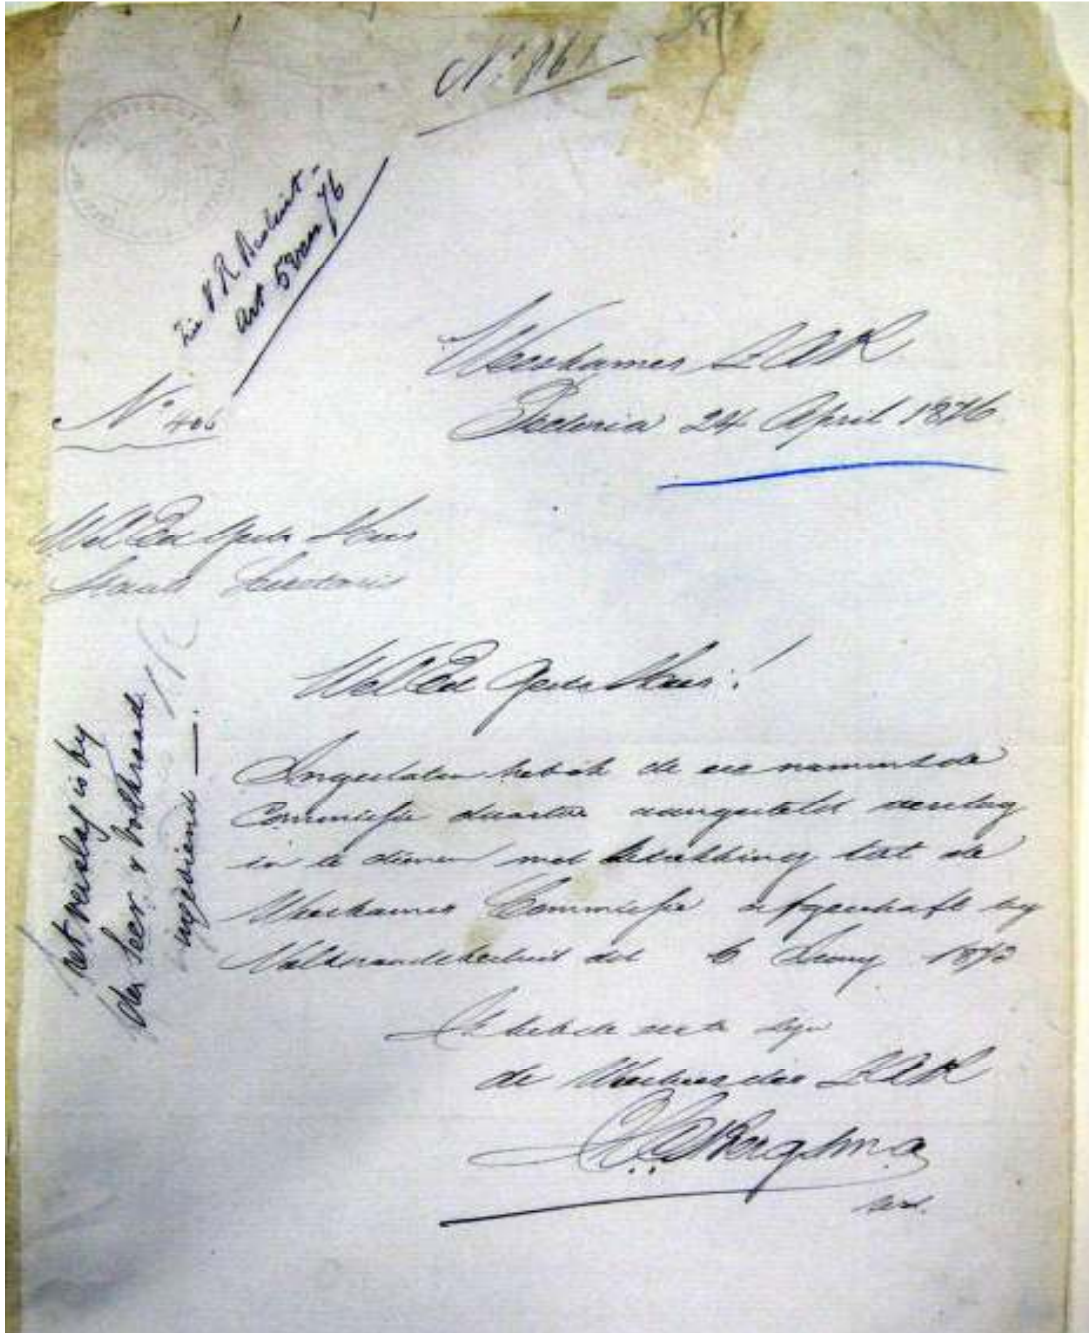 Zie V R Besluit
art 53 van 76
Weeskamer Z A R
Pretoria 24 April 1876
No 406
Wel Ed Gestr Heer
Staats Secretaris
Wel Ed Gestr Heer!
Ingesloten heb ik de eer namens de
Commissie daartoe aangesteld verslag
in te dienen met betrekking tot de
Weeskamer Commissie afgeschaft by
Volksraadsbesluit dd 6 1873
Ik heb de eer te zyn
de Weesheer der Z A R
Bergsma
het verslag is by
den Secr. v Volksraad
ingediend